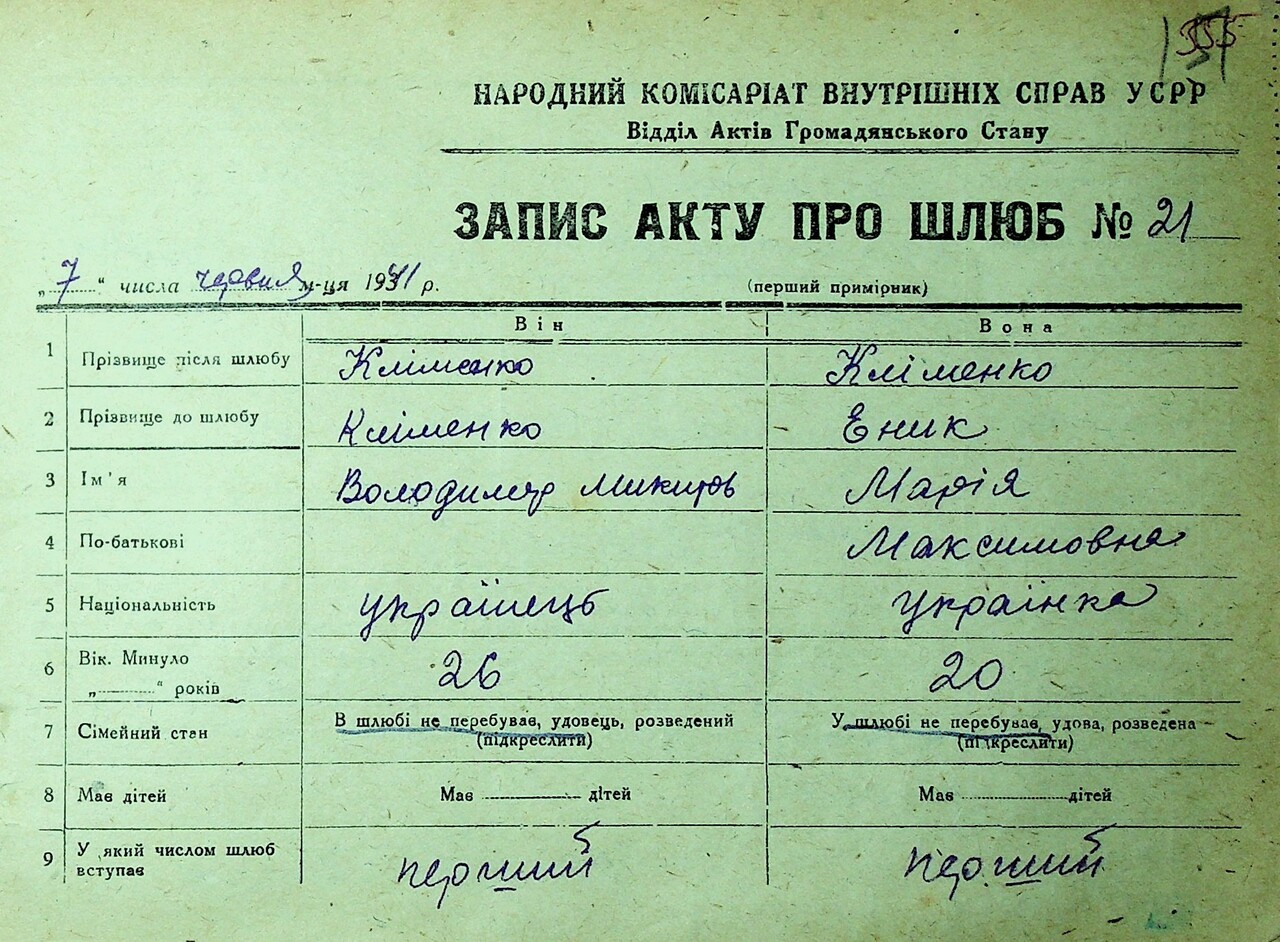 555
НАРОДНИЙ КОМІСАРІАТ ВНУТРІШНІХ СПРАВ УСРР
Відділ Актів Громадянського Стану
ЗАПИС АКТУ ПРО ШЛЮБ № 21
„7“ числа червня м-ця 1941 р. (перший примірник)
Він Вона
1 Прізвище після шлюбу Кліменко Кліменко
2 Прізвище до шлюбу Кліменко Еник
3 Ім'я Володимир Микитов Марія
4 По-батькові Максимовна
5 Національність українець українка
6 Вік. Минуло 26 20
„ “ років
7 Сімейний стан В шлюбі не перебував, удовець, розведений У шлюбі не перебував, удова, розведена
(підкреслити) (підкреслити)
8 Має дітей Має дітей Має дітей
9 У який числом шлюб вступає перший перший